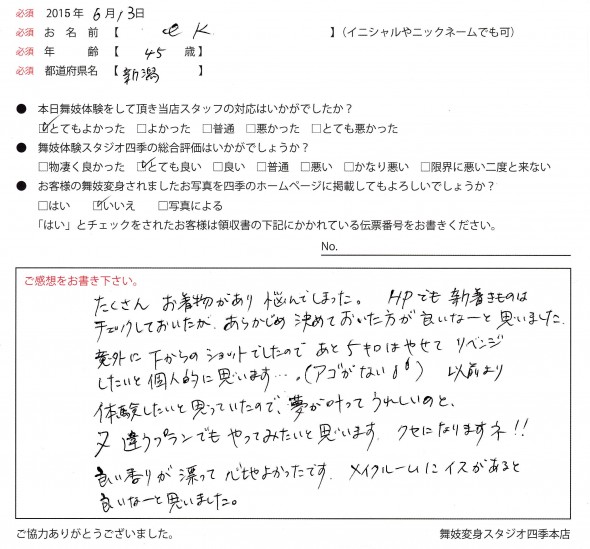 必須 2015年 6月13日
必須 お名前【 e K 】(イニシャルやニックネームでも可)
必須 年 齢【 45 歳】
必須 都道府県名【 新潟 】
● 本日舞妓体験をして頂き当店スタッフの対応はいかがでしたか?
☑とてもよかった □よかった □普通 □悪かった □とても悪かった
● 舞妓体験スタジオ四季の総合評価はいかがでしょうか?
□物凄く良かった ☑とても良い □良い □普通 □悪い □かなり悪い □限界に悪い二度と来ない
● お客様の舞妓変身されましたお写真を四季のホームページに掲載してもよろしいでしょうか?
□はい ☑いいえ □写真による
「はい」とチェックをされたお客様は領収書の下記にかかれている伝票番号をお書きください。
No.
ご感想をお書き下さい。
たくさん お着物があり 悩んでしまった。 HPでも 新着きものは
チェックしておいたが、あらかじめ 決めておいた方が 良いなーと 思いました。
意外に 下からの ショットでしたので あと 5キロは やせて リベンジ
したいと 個人的に 思います…。(アゴがない!!) 以前より
体験したいと 思っていたので、夢が叶って うれしいのと、
又 違うプランでも やってみたいと 思います. クセになりますネ!!
良い香りが 漂って 心地よかったです. メイクルームに イスがあると
良いなーと 思いました。
ご協力ありがとうございました。
舞妓変身スタジオ四季本店